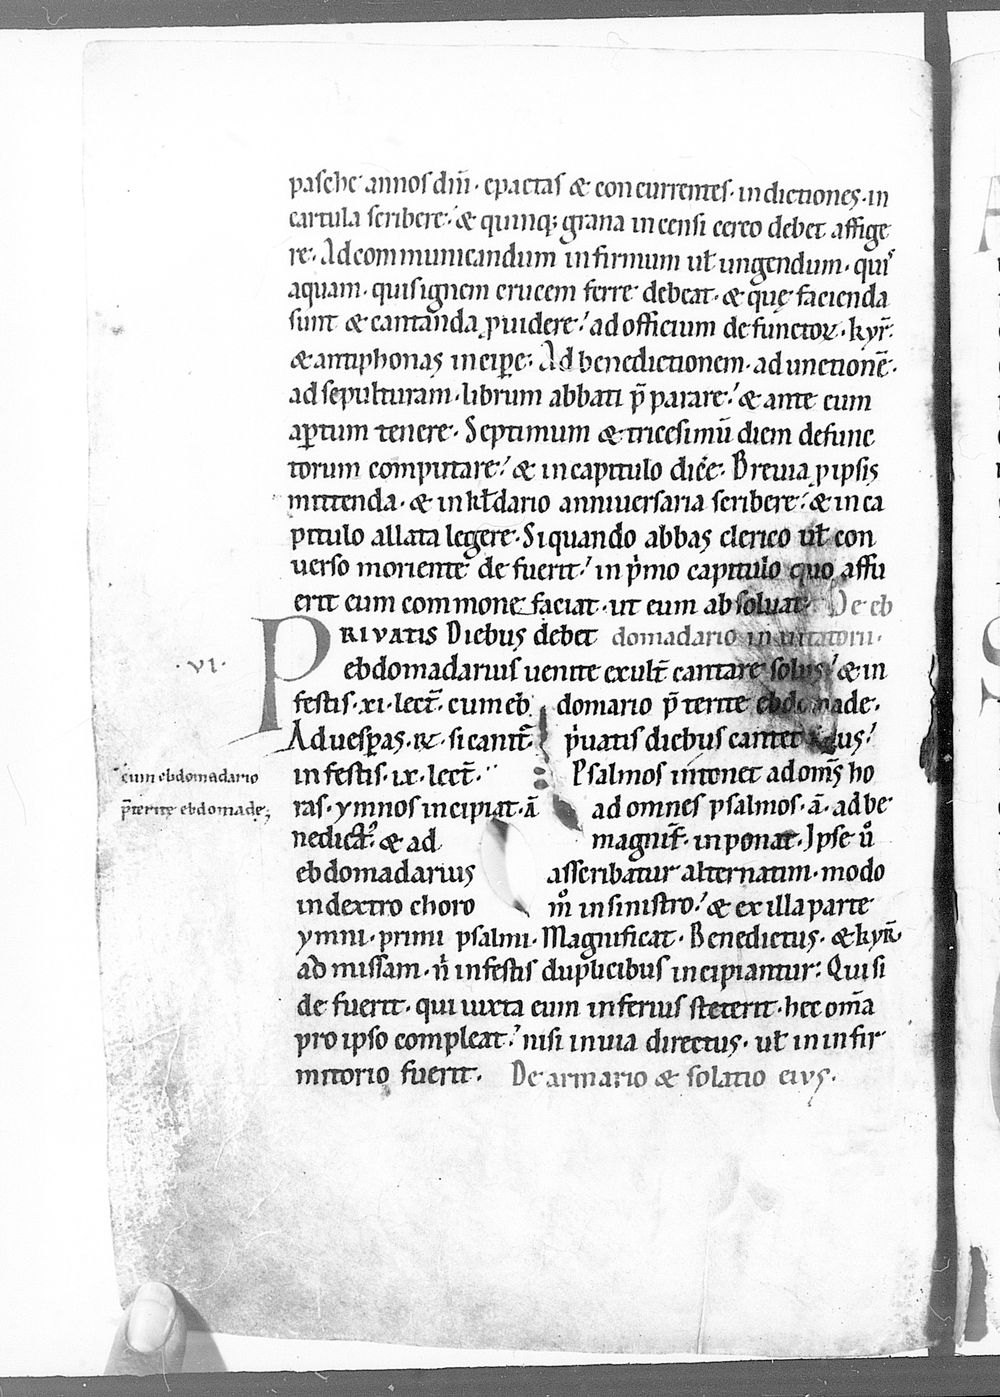 pasche annos dñi · epactas & concurrentes · indictiones · in
cartula scribere · & quinq; grana incensi cereo debet affige
re · Ad communicandum infirmum ut ungendum · quis
aquam · qui signem crucem ferre debeat · & quę facienda
sunt & cantanda puidere · ad officium defunctoꝝ · kyr̃ ·
& antiphonas incipe · Ad benedictionem · ad unctionẽ ·
ad sepulturam · librum abbati p̄parare · & ante eum
aptum tenere · Septimum & tricesimũ diem defunc
torum computare · & in capitulo dic̃e · Brevia p ipsis
mittenda · & in kłdario anniversaria scribere · & in ca
pitulo allata legere · Si quando abbas clerico uł con
verso moriente defuerit · in p̾mo capitulo quo affu
erit eum commone faciat · ut eum absoluat · De eb
PRIVATIS Diebus debet domadario inuitatorii ·
· VI ·
ebdomadarius uenite exult̃ cantare solus · & in
festis · xi · lect̃ · cum eb domario p̄terite ebdomade ·
Ad uespas · ℟ · si cantet̃ p̾uatis diebus cantet solus ·
cum ebdomadario
in festis · ix · lect̃ · Psalmos intonet ad om̃s ho
p̄terite ebdomade,
ras · ymnos incipiat · ā ad omnes psalmos · ā · ad be
nedict̃ · & ad magnif̃ · inponat · Ipse ů
ebdomadarius asscribatur alternatim · modo
in dextro choro m̊ in sinistro · & ex illa parte
ymni · primi psalmi · Magnificat · Benedictus · & kyr̃
ad missam · ñ in festis duplicibus incipiantur · Qui si
defuerit · qui iuxta eum inferius steterit · hec om̃a
pro ipso compleat · nisi in uia directus · uł in infir
mitorio fuerit · De armario & solatio eius ·